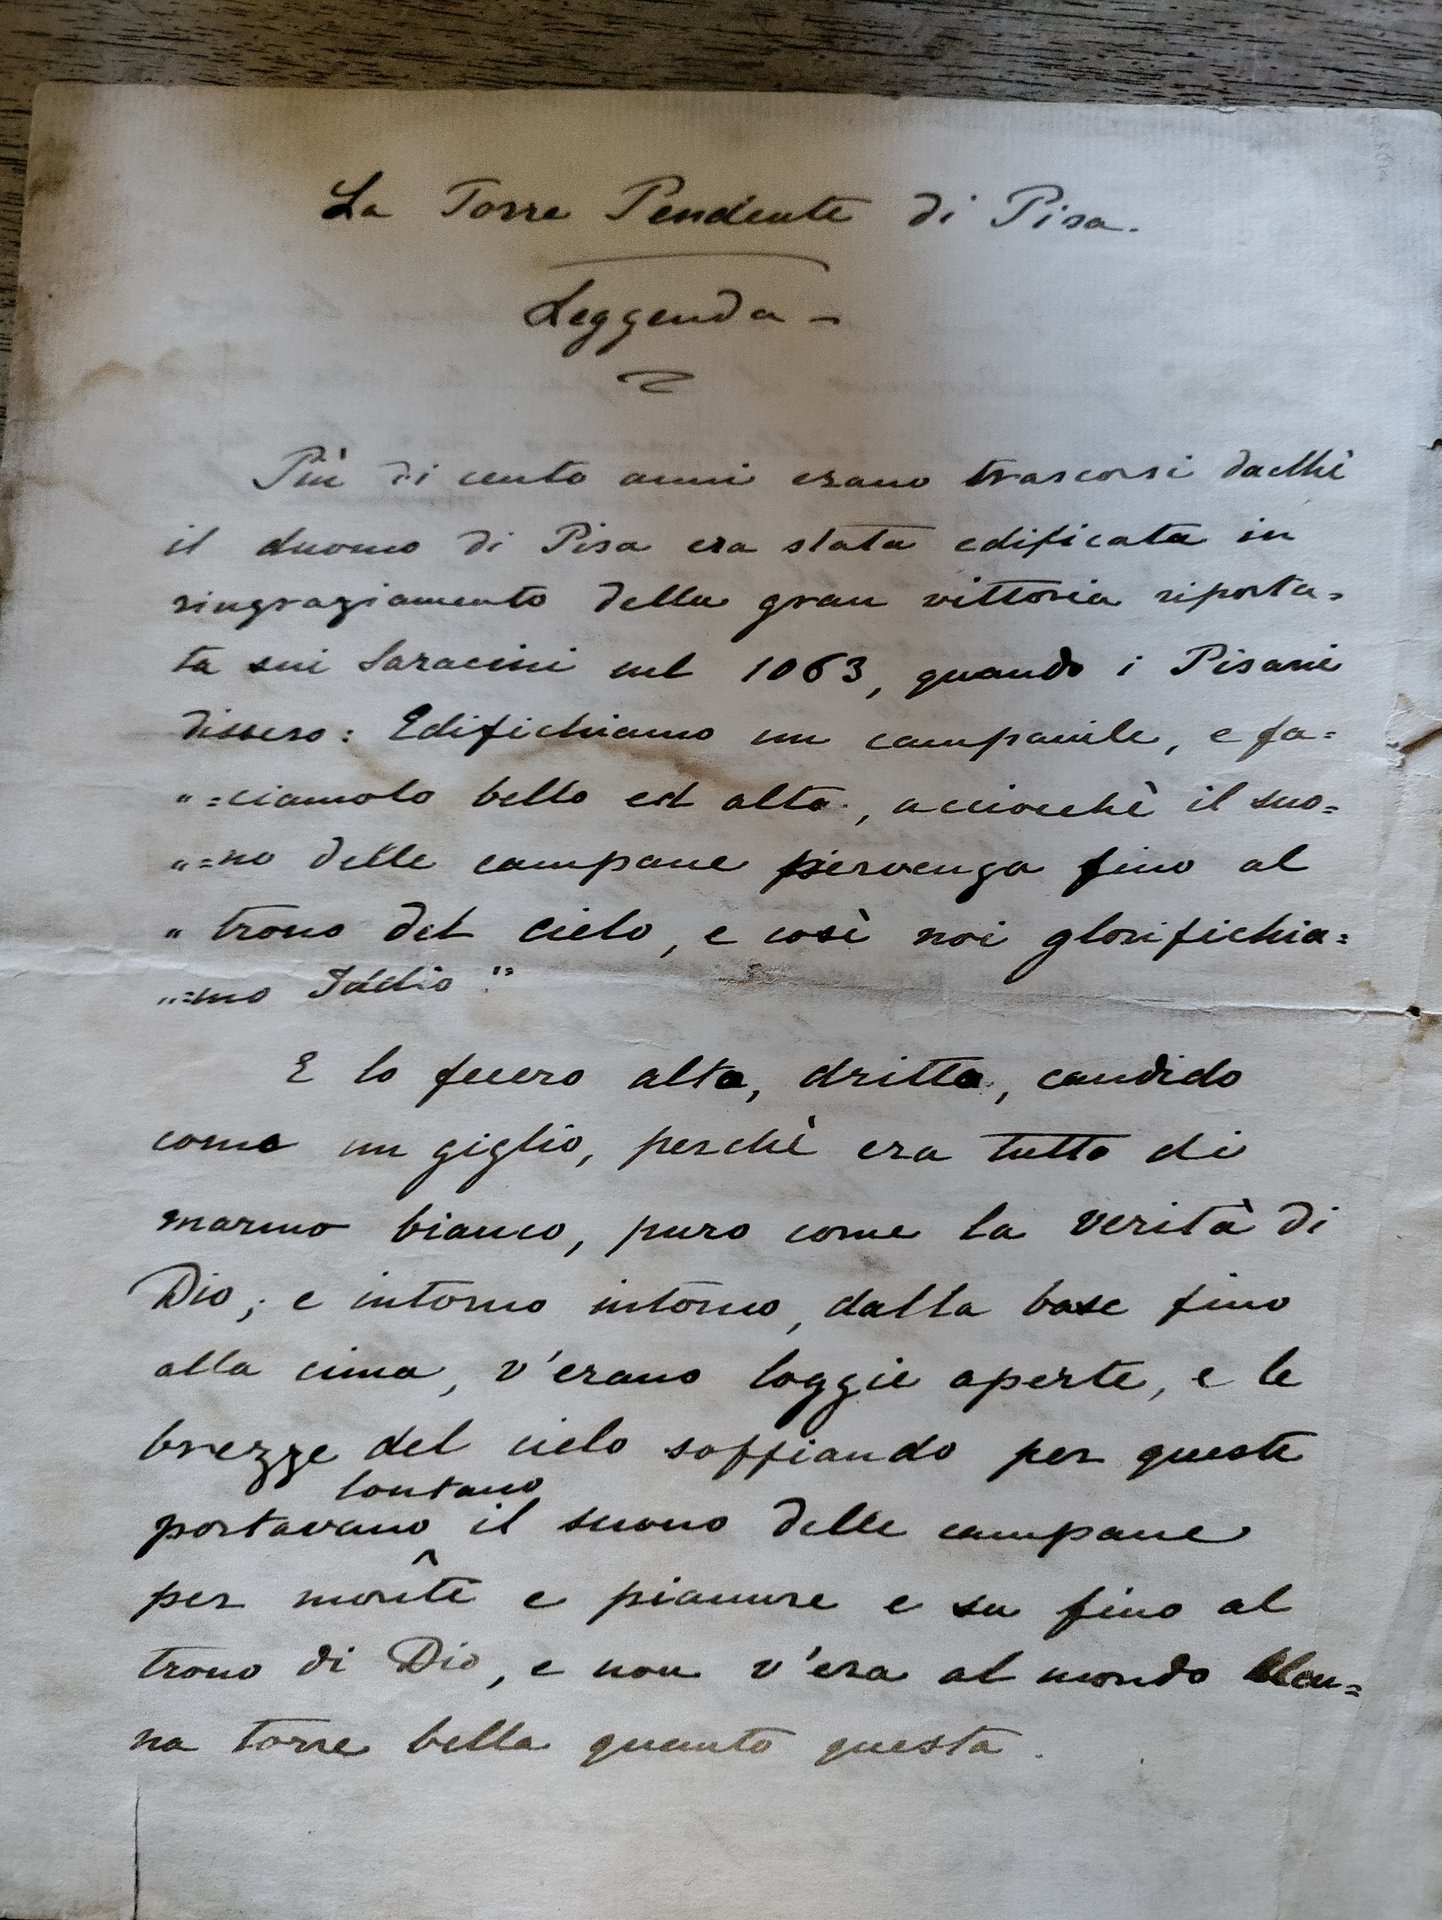 La Torre Pendente di Pisa.
Leggenda -
Più di cento anni erano trascorsi dacchè
il duomo di Pisa era stata edificata in
ringraziamento della gran vittoria riporta=
ta sui Saracini nel 1063, quando i Pisani
dissero: Edifichiamo un campanile, e fa=
"=ciamolo bello ed alto, acciocchè il suo=
"=no delle campane pervenga fino al
" trono del cielo, e così noi glorifichia=
"=mo Iddio."
E lo fecero alto, dritto, candido
come un giglio, perchè era tutto di
marmo bianco, puro come la verità di
Dio; e intorno intorno, dalla base fino
alla cima, v'erano loggie aperte, e le
brezze del cielo soffiando per queste
lontano
portavano il suono delle campane
per monti e pianure e su fino al
trono di Dio, e non v'era al mondo alcu=
na torre bella quanto questa.